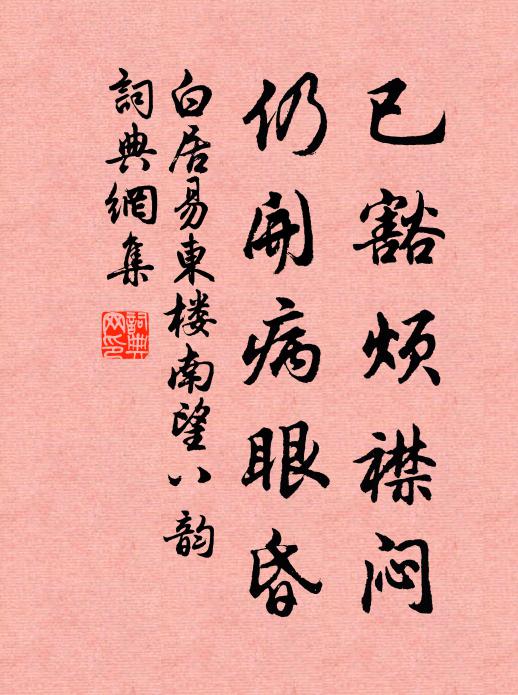 已豁烦襟闷
仍开病眼昏
白居易東楼南望八韵
詞典網集
詞典网印